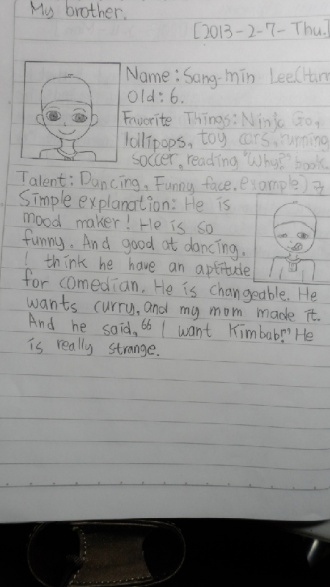 My brother.
[2013-2-7-Thu.]
Name: Sang-min Lee(
Old: 6.
Favorite Things: Ninja Go,
lollipops, toy cars, running,
soccer, reading "Why?" book.
Talent: Dancing, Funny face.example)
Simple explanation: He is
mood maker! He is so
funny. And good at dancing.
I think he have an aptitude
for comedian. He is changeable. He
wants curry, and my mom made it.
And he said, "I want Kimbab!" He
is really strange.